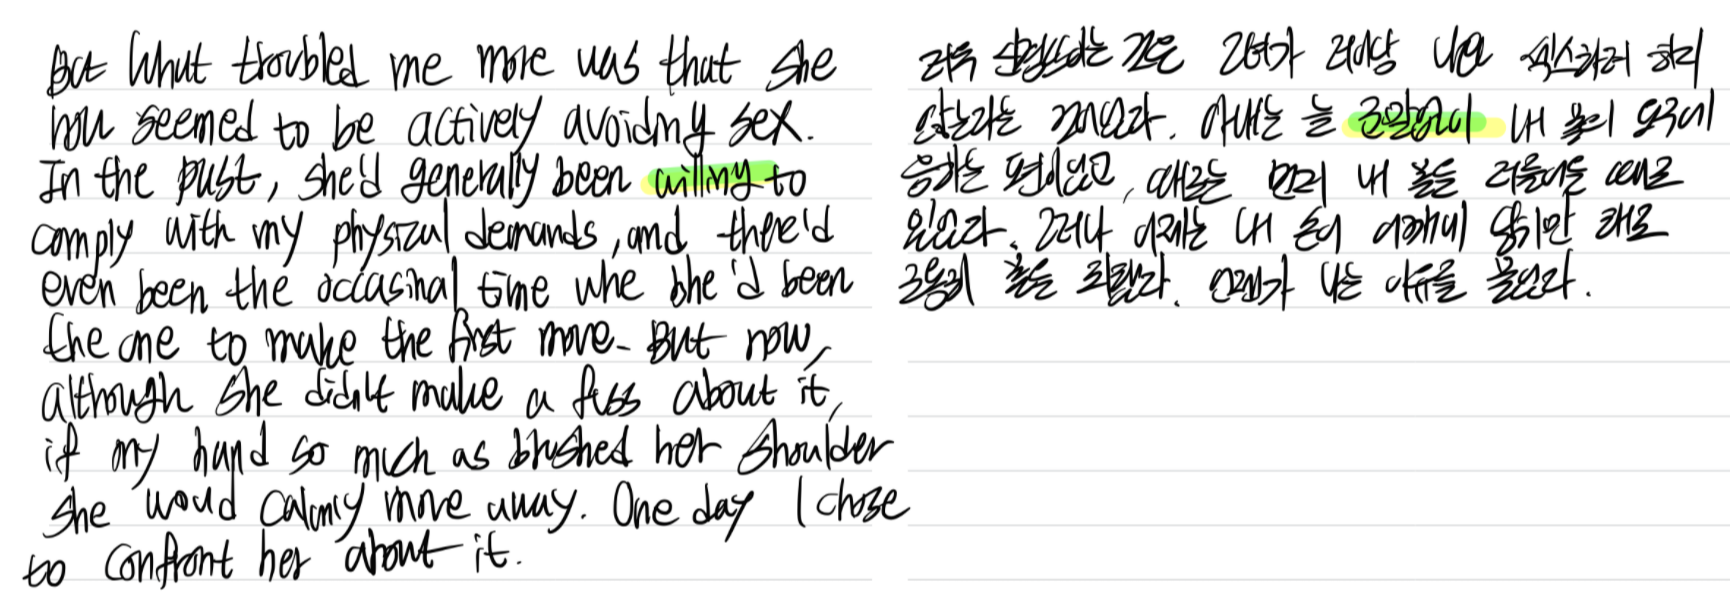 But what troubled me more was that she
now seemed to be actively avoiding sex.
In the past, she'd generally been willing to
comply with my physical demands, and there'd
even been the occasinal time whe she'd been
the one to make the first move. But now,
although she didn't make a fuss about it,
if my hand so much as brushed her shoulder
she would calmly move away. One day I chose
to confront her about it.
더욱 것은 그녀가 더이상 나와 섹스하려 하지
않는다는 것이었다. 아내는 늘 군말없이 내 몸의 요구에
응하는 편이었고, 때로는 먼저 내 몸을 더듬어올 때도
있었다. 그러나 이제는 내 손이 어깨에 닿기만 해도
조용히 몸을 피했다. 언젠가 나는 이유를 물었다.